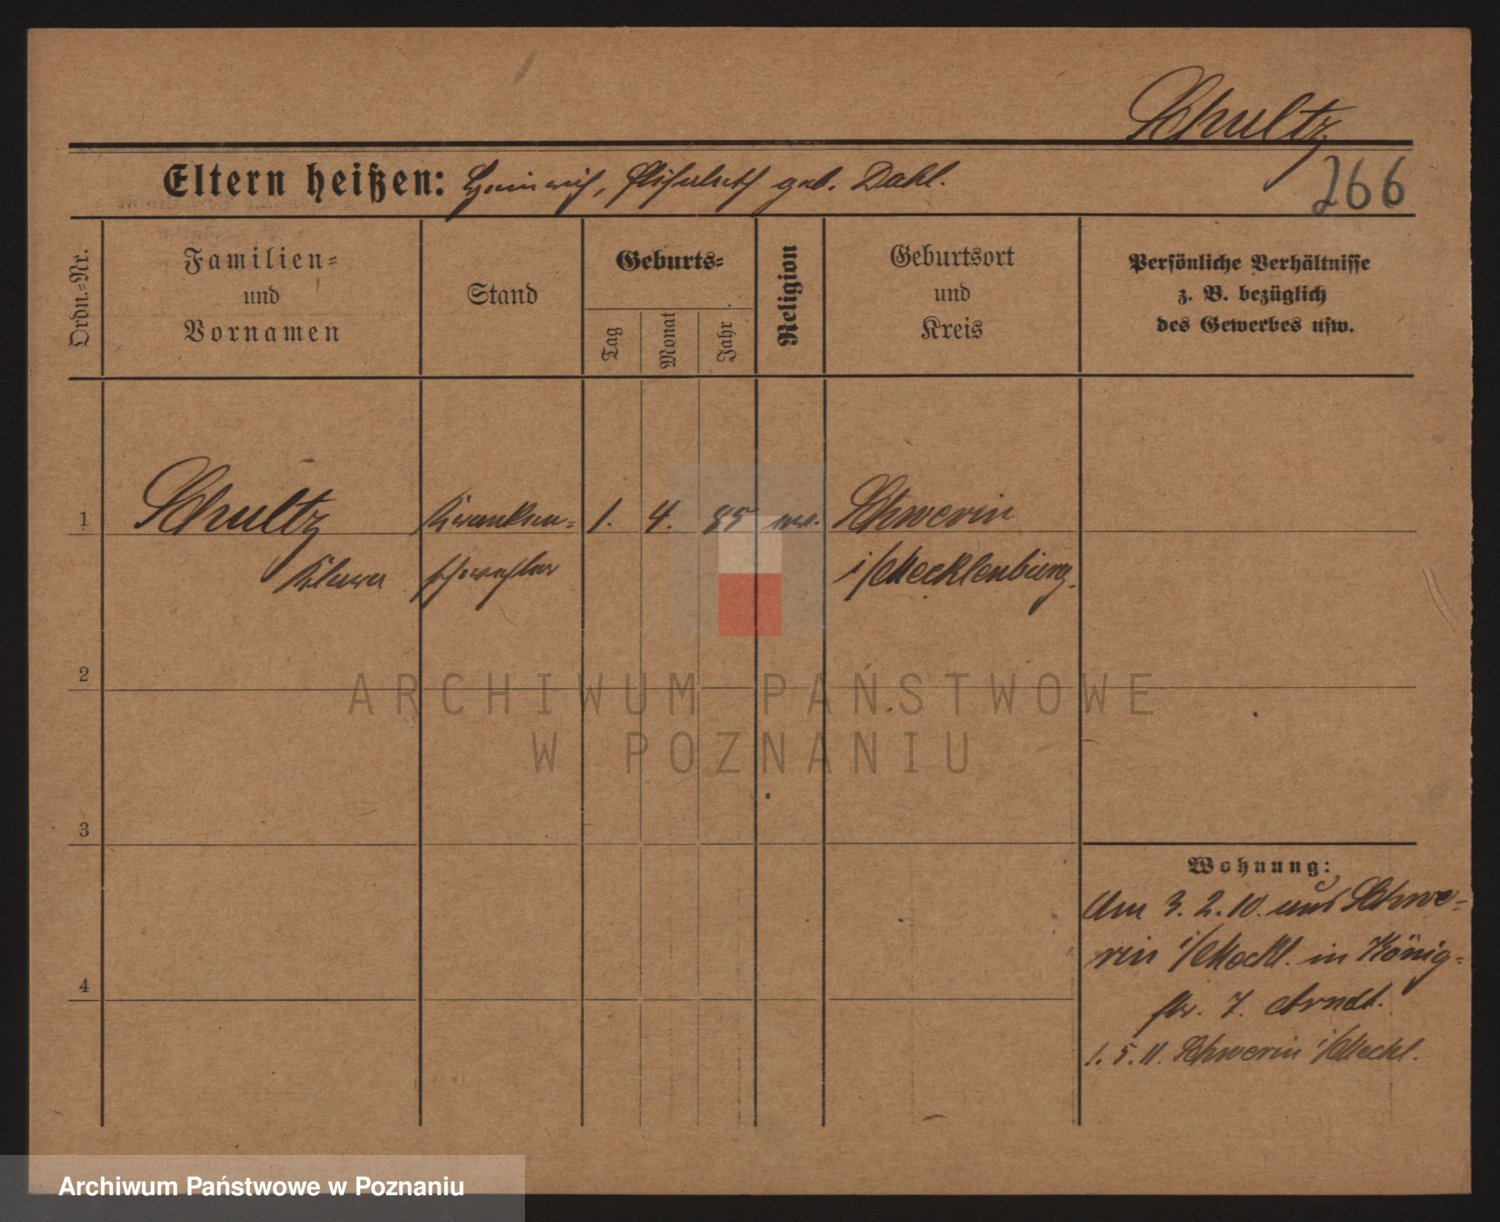 Schultz
Eltern heißen: Heinrich, Elisabeth geb. Dahl.
266
Ordn.-Nr.
Familien-
und
Vornamen
Stand
Geburts-
Tag
Monat
Jahr
Religion
Geburtsort
und
Kreis
Persönliche Verhältnisse
z. B. bezüglich
des Gewerbes usw.
1
Schultz
Klara
Kranken-
schwester
1.
4.
85
ev.
Schwerin
i/Mecklenburg.
2
3
4
ARCHIWUM PAŃSTWOWE
W POZNANIU
Wohnung:
Am 3.2.10. aus Schwe-
rin i/Meckl. in König-
str. 7. Arndt.
1.5.11. Schwerin i/Meckl.
Archiwum Państwowe w Poznaniu